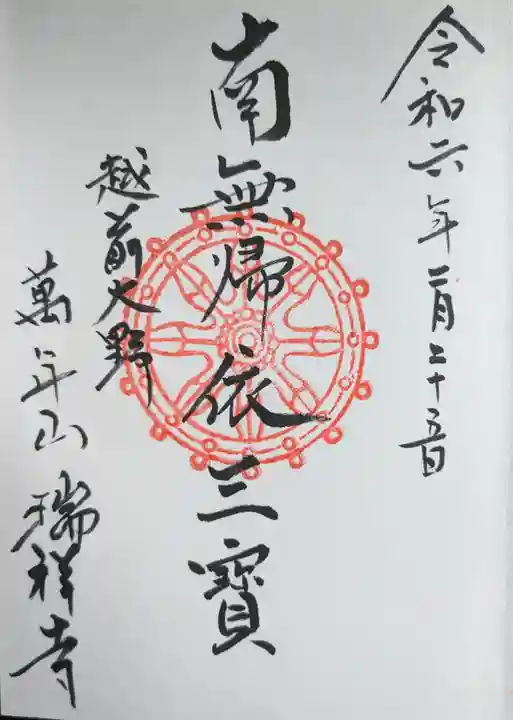 令和六年二月二十五日
南無帰依三寶
越前大野
萬年山瑞祥寺